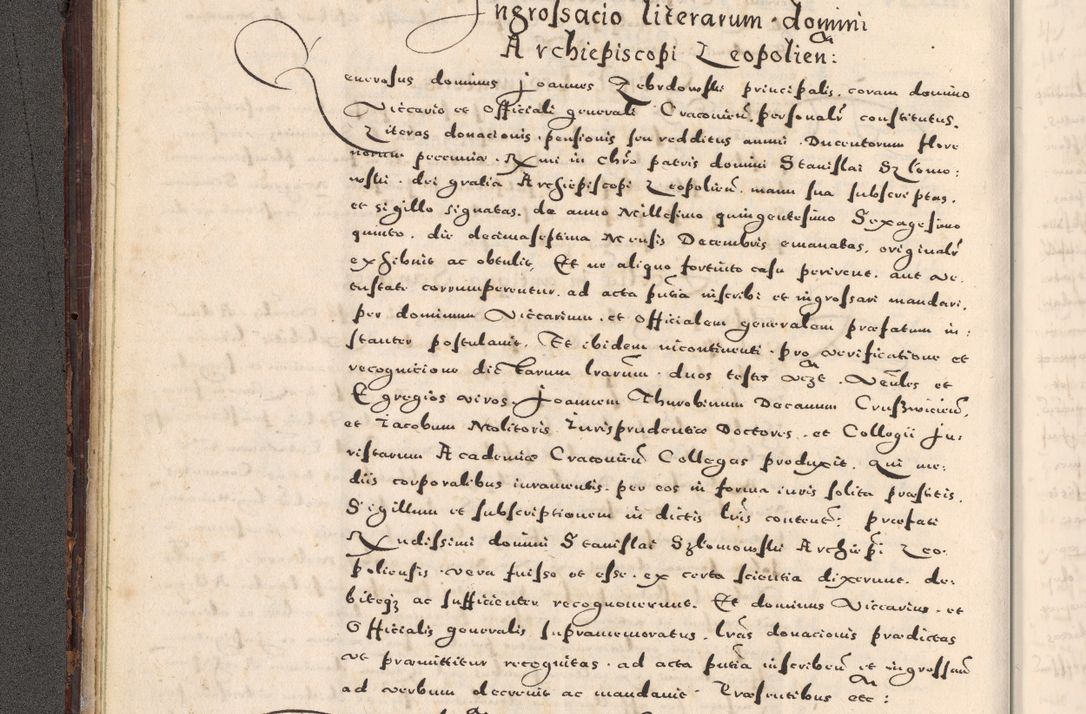 Ingrossacio literarum domini
Archiepiscopi Leopolien:
Generosus dominus Joannes Zebrdowski principalis. coram domino
Viccario et Officiali generali Cracovien. personalr constitutus.
Literas donacionis. pensionis seu redditus annui. Ducentorum flore
norum pecuniae. Rmi in chro patris domini Stanislai Szlomo:
wski. dei gratia Archiepiscopi Leopolien. manu sua subscriptas.
et sigillo signatas. de anno Millesimo quingentesimo Sexagesimo
quinto. die decimaseptima Mensis Decembris emanatas. originalr
exhibuit ac obtulit, Et ne aliquo fortuito casu perirent. aut ve
tustate corrumperentur. ad acta pntia inscribi et ingrossari mandari.
per dominum Viccarium. et Officialem generalem praefatum in:
stanter postulavit. Et ibidem incontinenti. pro verificatione et
recognicione dictarum lrarum. duos testes vezt. Venles et
Egregios viros. Joannem Thurobinum Decanum Cruszwicien,
et Jacobum Molitoris Jurisprudentiae Doctores. et Collegii Ju:
ristarum Academiae Cracovien Collegas produxit. Qui me:
diis corporalibus iuramentis. per eos in forma iuris solita praestitis.
Sigillum et subscriptionem in dictis lris content: praefati
Rndissimi domini Stanislai Szlomowski Archiepi Leo:
poliensis. vera fuisse et esse. ex certa scientia dixerunt. de:
biteqz ac sufficienter recognoverunt. Et dominus Viccarius. et
Officialis generalis supramemoratus. lras donacionis praedictas
ut praemittitur recognitas. ad acta pntia inscriben et ingrossan
ad verbum decrevit ac mandavit. Praesentibus etc: